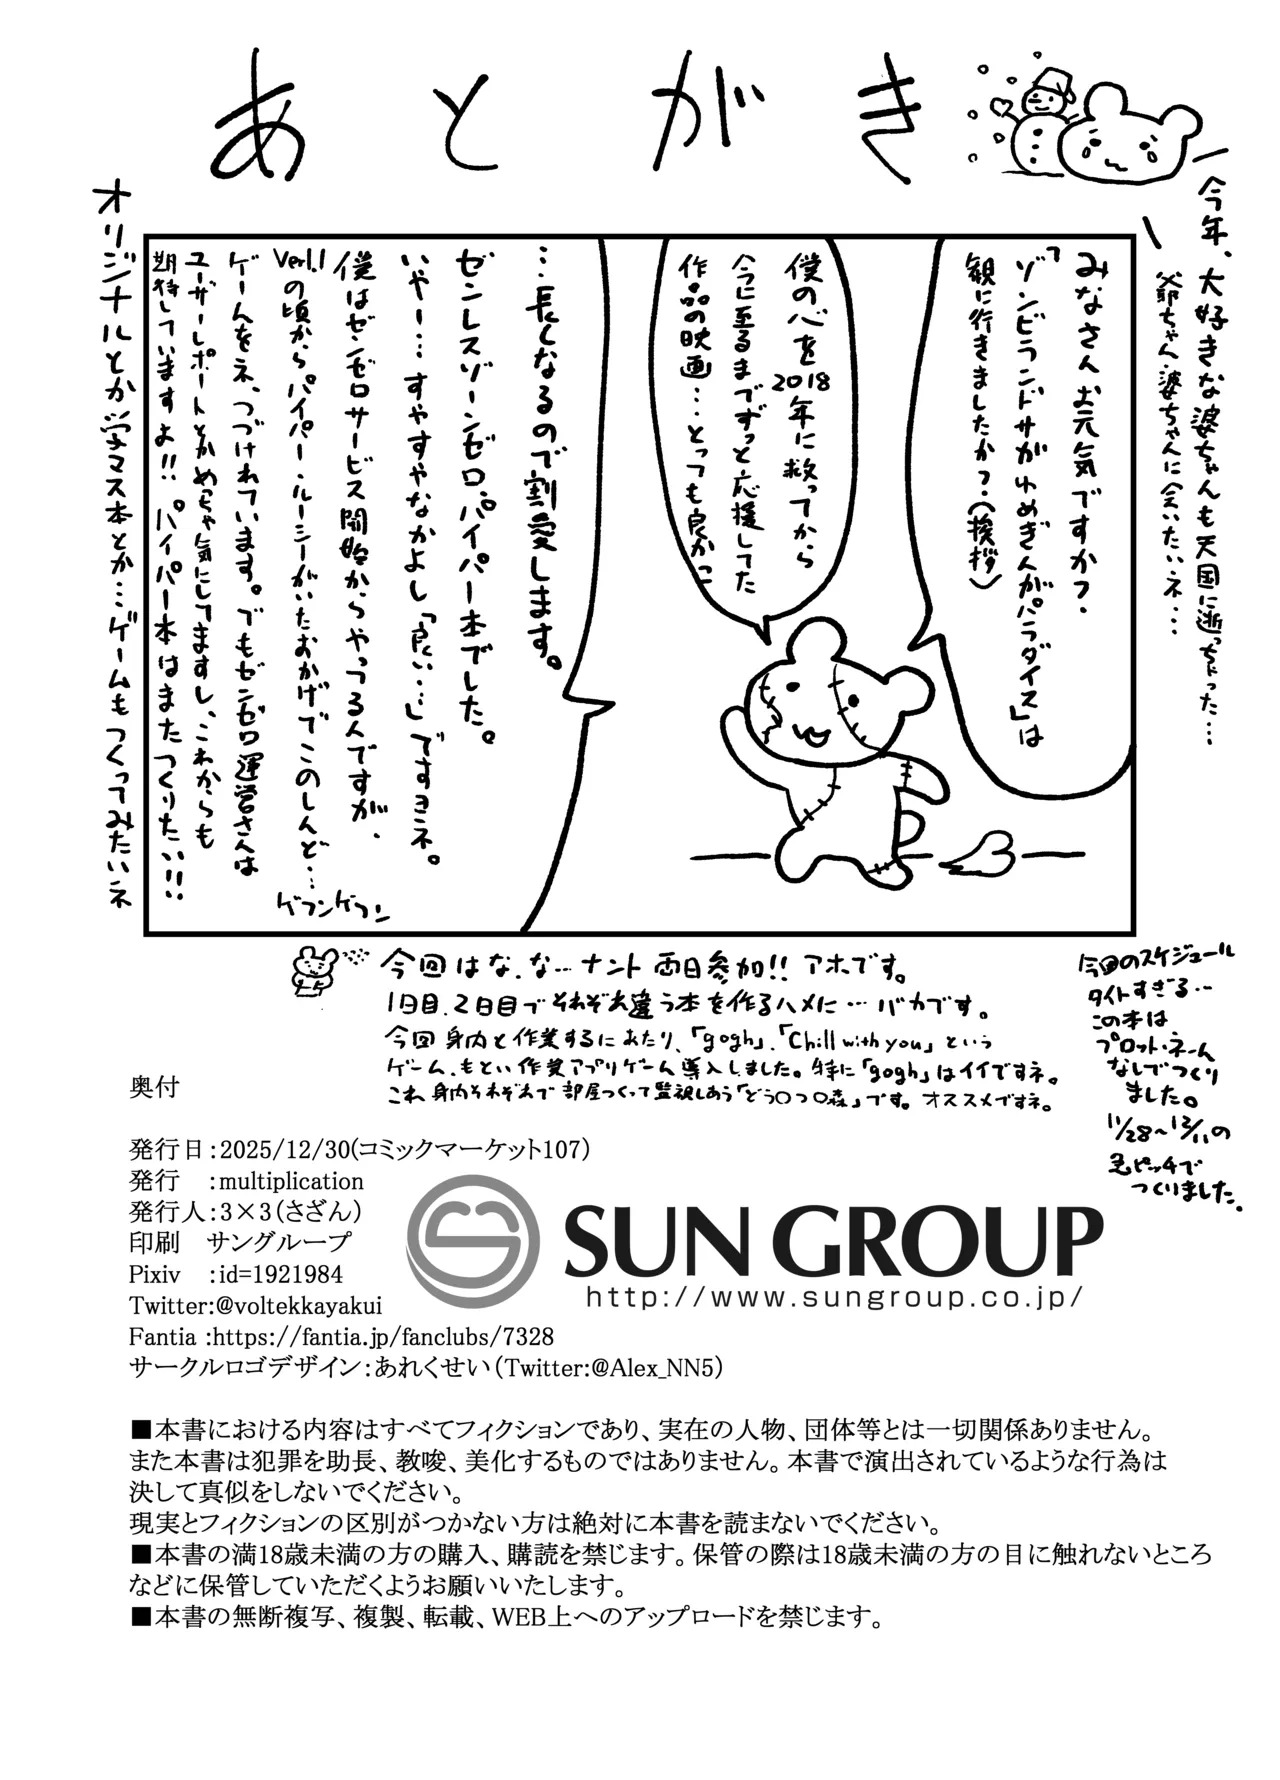 あとがき
今年、大好きな婆ちゃんも天国に逝っちゃった…
爺ちゃん・婆ちゃんに会いたいネ…
みなさんお元気ですか?
「ゾンビランドサガゆめぎんがパラダイス」は
観に行きましたか?(挨拶)
僕の心を2018年に救ってから
今に至るまでずっと応援してた
作品の映画…とっても良かっ
…長くなるので割愛します。
ゼンレスゾーンゼロ、パイパー本でした。
いやー…すやすやなかよし「良い…」ですヨネ。
僕はゼンゼロサービス開始からやってる人ですが、
Ver1.1の頃からパイパー・ルーシーがいたおかげでこのしんど…
ゲフンゲフン
ゲームをネ、つづけれています。でもゼンゼロ運営さんは
ユーザーレポートとかめっちゃ気にしてますし、これからも
期待していますよ!!パイパー本はまたつくりたい!!
オリジナルとか学マス本とか…ゲームもつくってみたいネ
今回はな、な…ナント両日参加!!アホです。
1日目、2日目でそれぞれ違う本を作るハメに…バカです。
今回身内と作業するにあたり、「gogh」、「Chill with you」という
ゲーム、もとい作業アプリゲーム導入しました。特に「gogh」はイイですネ。
これ身内それぞれで部屋つくって監視しあう「どう〇つ〇森」です。オススメですネ。
今回のスケジュール
タイトすぎる…
この本は
プロット・ネーム
なしでつくり
ました。
11/28〜12/11の
急ピッチで
つくりました。
奥付
発行日:2025/12/30(コミックマーケット107)
発行 :multiplication
発行人:3×3(さざん)
印刷 サングループ
Pixiv :id=1921984
Twitter:@voltekkayakui
Fantia :https://fantia.jp/fanclubs/7328
サークルロゴデザイン:あれくせい(Twitter:@Alex_NN5)
SUN GROUP
http://www.sungroup.co.jp/
■本書における内容はすべてフィクションであり、実在の人物、団体等とは一切関係ありません。
また本書は犯罪を助長、教唆、美化するものではありません。本書で演出されているような行為は
決して真似をしないでください。
現実とフィクションの区別がつかない方は絶対に本書を読まないでください。
■本書の満18歳未満の方の購入、購読を禁じます。保管の際は18歳未満の方の目に触れないところ
などに保管していただくようお願いいたします。
■本書の無断複写、複製、転載、WEB上へのアップロードを禁じます。